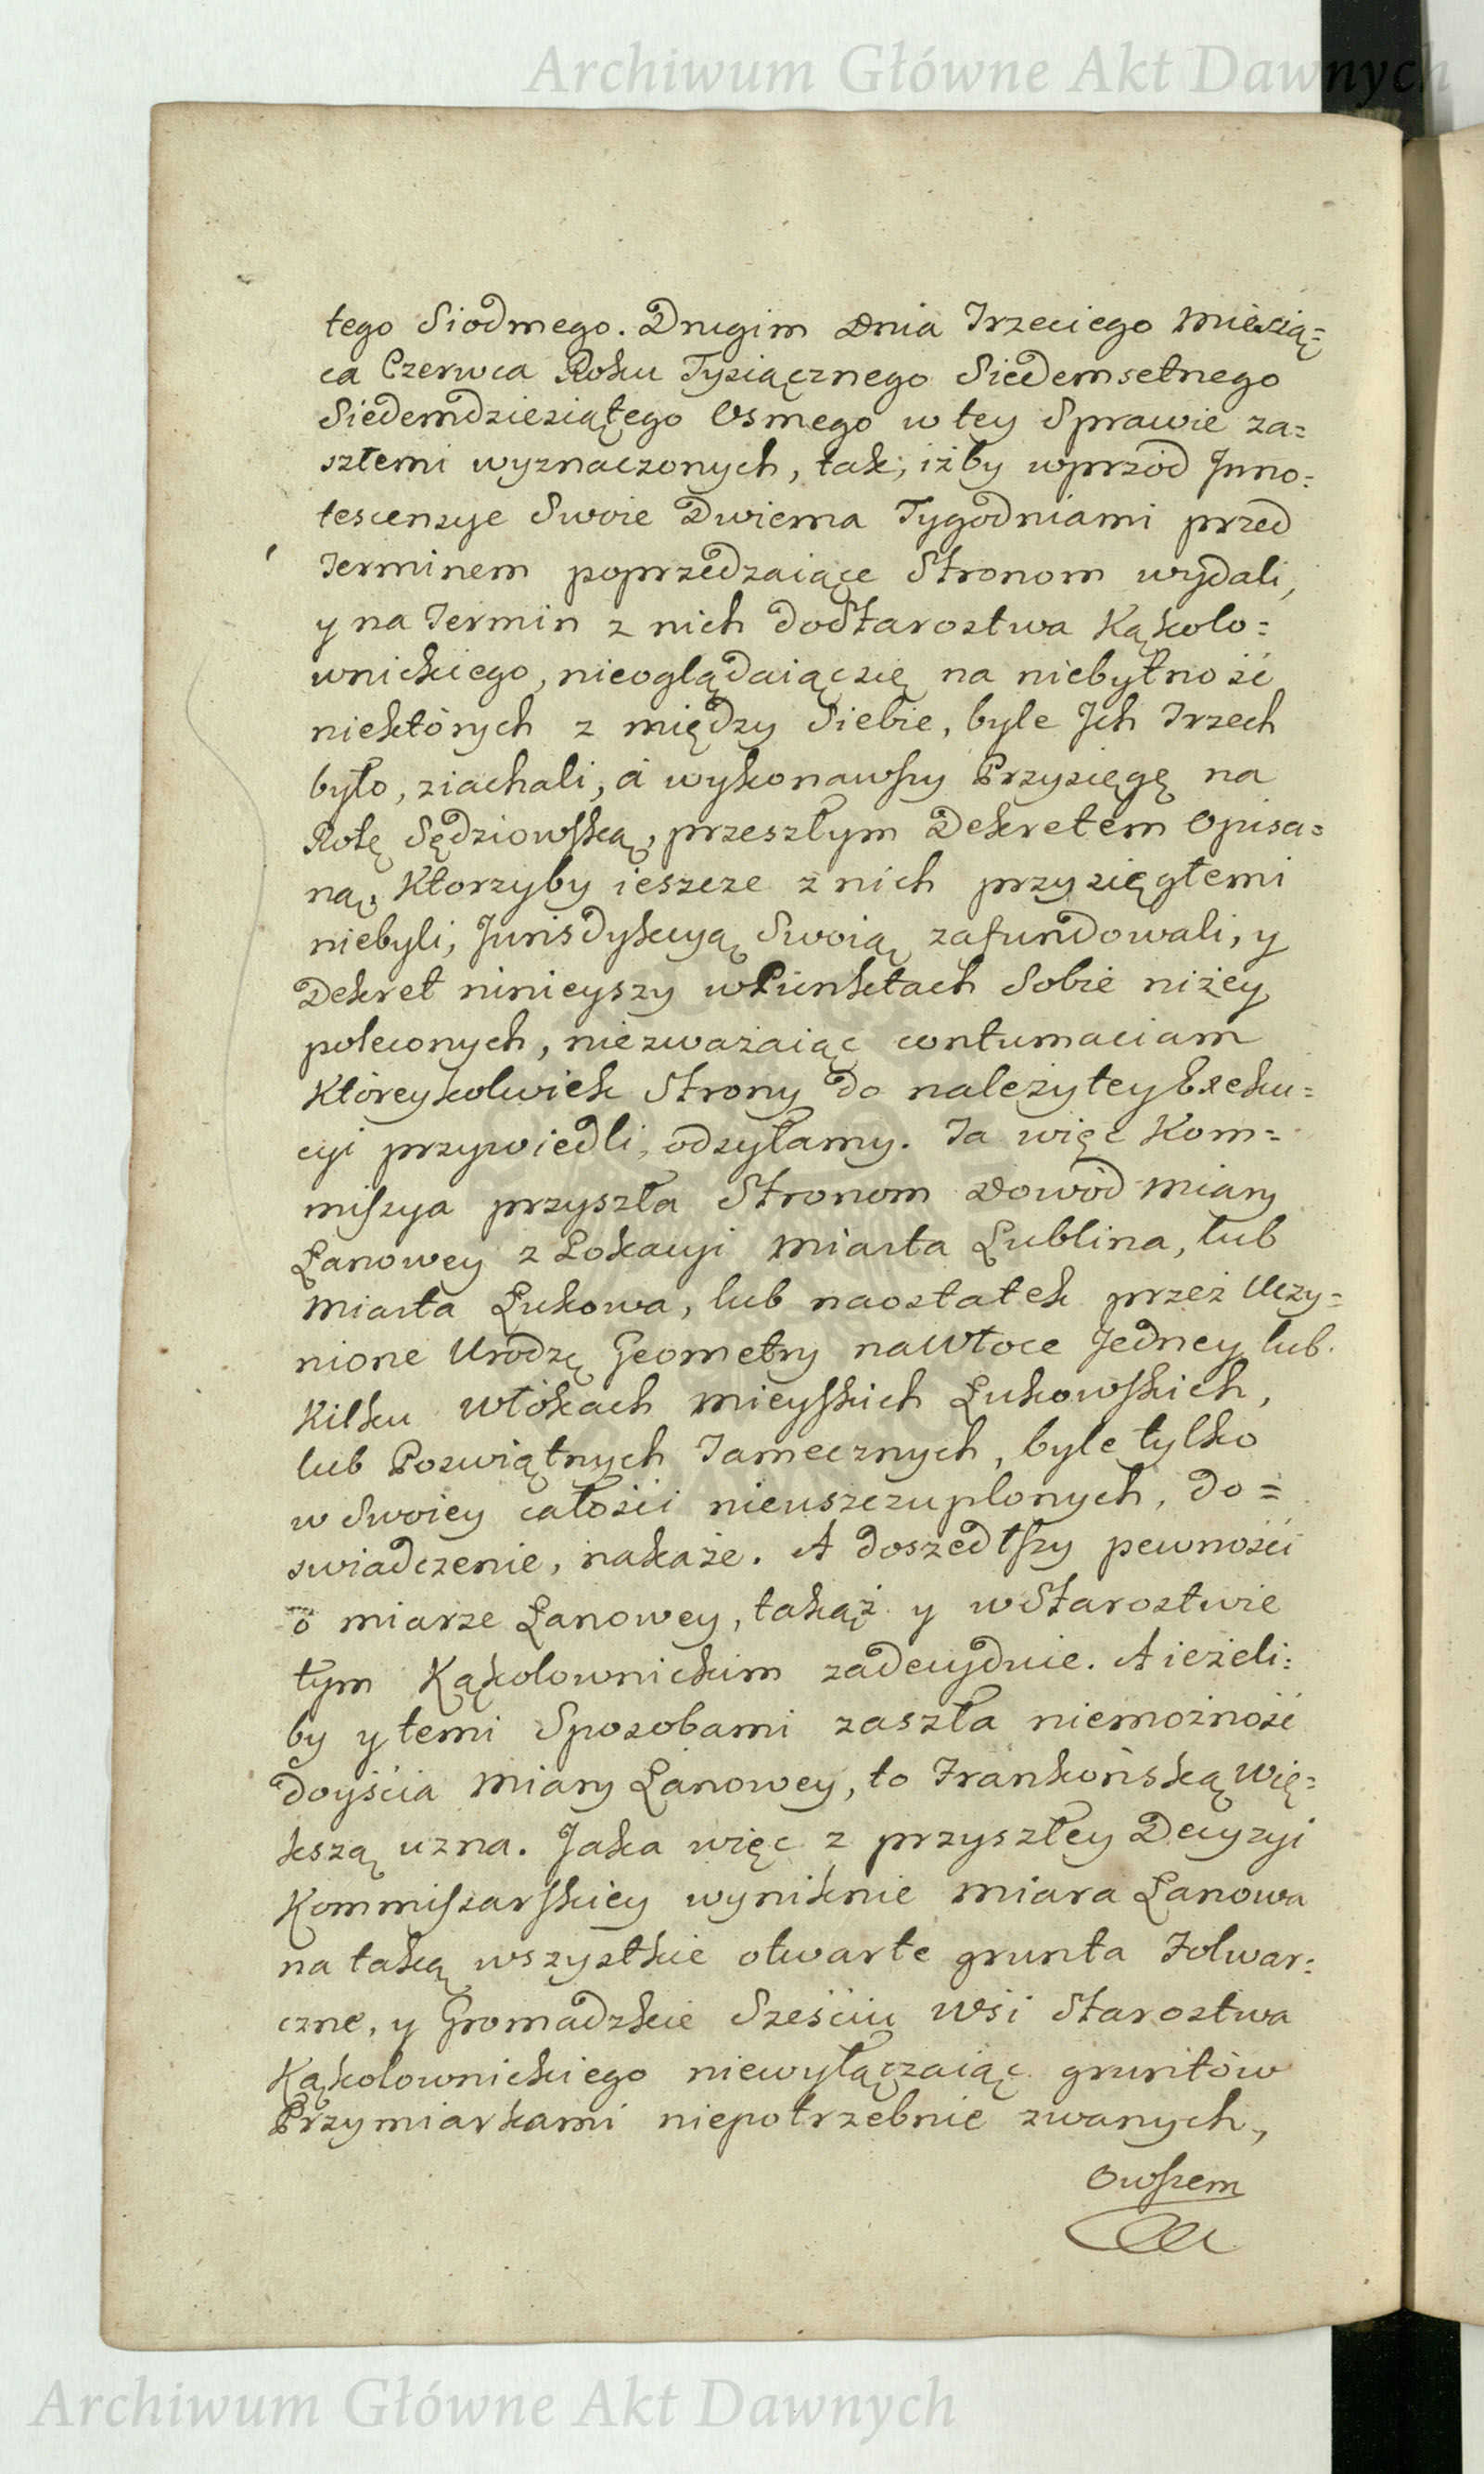 Archiwum Główne Akt Dawnych
tego Siodmego. Drugim Dnia Trzeciego Miesią=
ca Czerwca Roku Tysiącznego Siedemsetnego
Siedemdziesiątego Osmego w tey Sprawie za=
szłemi wyznaczonych, tak, iżby wprzód Inno=
tescensye Swoie Dwiema Tygodniami przed
Terminem poprzedzaiące Stronom wydali,
y na Termin z nich do Starostwa Kąkolo=
wnickiego, nieoglądaiąc się na niebytność
niektórych z między Siebie, byle Ich Trzech
było, ziachali, a wykonawszy Przysięgę na
Rotę Sędziowską, przeszłym Dekretem Opisa=
ną, Ktorzyby ieszcze z nich przysięgłemi
niebyli, Jurisdykcyą Swoią zafundowali, y
Dekret ninieyszy w Punktach Sobie niżey
poleconych, niezważaiąc contumaciam
Któreykolwiek Strony do należytey Exeku=
cyi przywiedli, odsyłamy. Ta więc Kom=
missya przyszła Stronom Dowód miary
Łanowey z Lokacyi Miasta Lublina, lub
Miasta Łukowa, lub naostatek przez Uczy=
nione Urodzę Geometry na Włoce Jedney lub
Kilku Włókach Mieyskich Łukowskich,
lub Poswiątnych Tamecznych, byle tylko
w Swoiey całości nieuszczuplonych, do=
swiadczenie, nakaże. A doszedłszy pewności
o miarze Łanowey, takąż y w Starostwie
tym Kąkolownickim zadecyduie. A ieżeli=
by y temi Sposobami zaszła niemożność
doyścia Miary Łanowey, to Frankońską Wię=
kszą uzna. Jaka więc z przyszłey Decyzyi
Kommissarskiey wyniknie miara Łanowa
na taką wszystkie otwarte grunta Folwar=
czne, y Gromadzkie Sześciu Wsi Starostwa
Kąkolownickiego niewyłączaiąc gruntów
Przymiarkami niepotrzebnie zwanych,
Owszem
Archiwum Główne Akt Dawnych